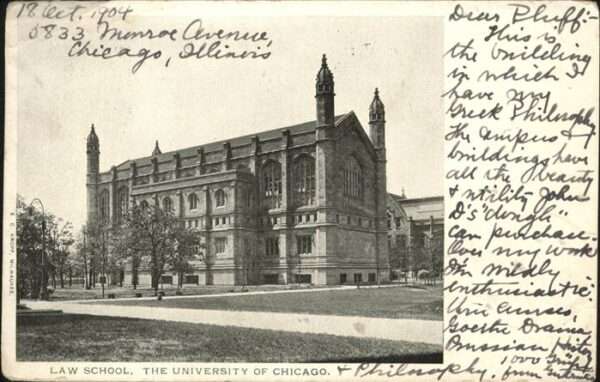 18 Oct. 1904
5833 Monroe Avenue,
Chicago, Illinois
Dear Pluff:-
This is
the building
in which I
have my
Greek Philosophy
The campus &
buildings have
all the beauty
& utility John
D's "dough"
can purchase.
Over my work
I'm wildly
enthusiastic.
Goethe Drama
Prussian History
1000
& Philosophy. from
A. C. KROPP, MILWAUKEE.
LAW SCHOOL. THE UNIVERSITY OF CHICAGO.